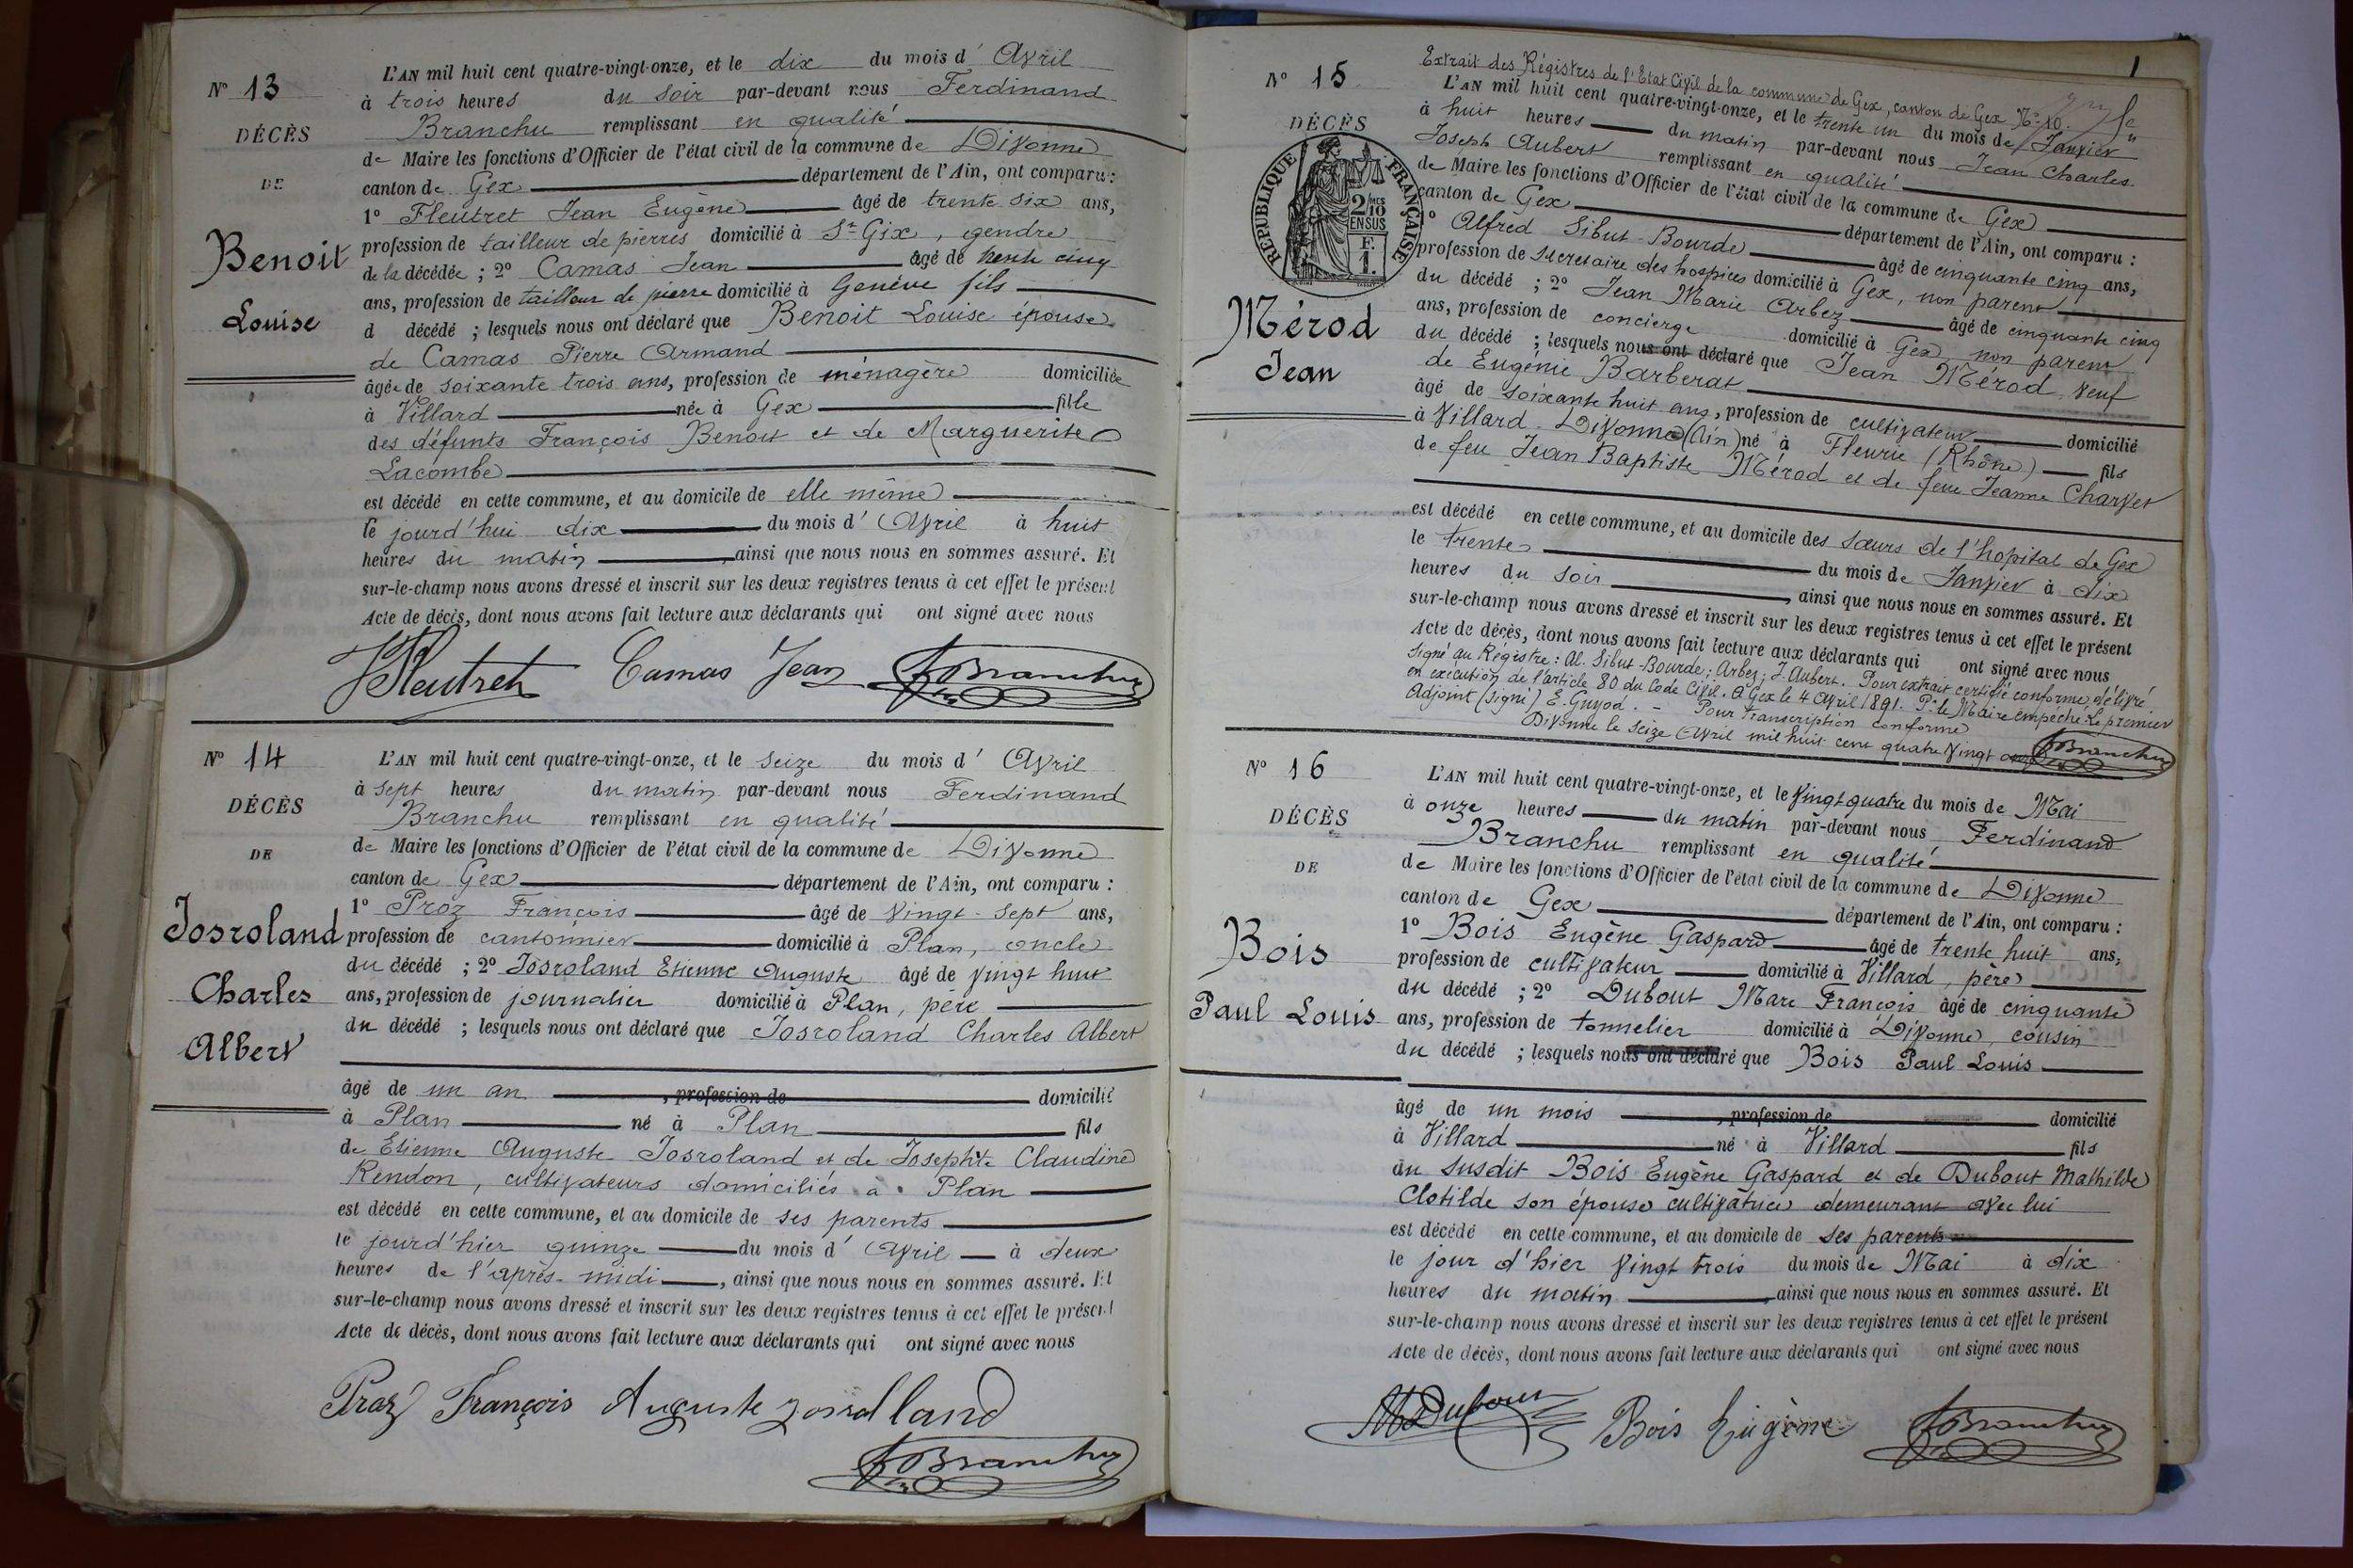 N° 13
DÉCÈS
DE
Benoit
Louise
L'AN mil huit cent quatre-vingt-onze, et le dix du mois d' Avril
à trois heures du soir par-devant nous Ferdinand
Branchu remplissant en qualité
de Maire les fonctions d'Officier de l'état civil de la commune de Divonne
canton de Gex département de l'Ain, ont comparu :
1° Fleutret Jean Eugène âgé de trente six ans,
profession de tailleur de pierres domicilié à St Gix, gendre
de la décédée ; 2° Camas Jean âgé de trente cinq
ans, profession de tailleur de pierre domicilié à Genève fils
d décédé ; lesquels nous ont déclaré que Benoit Louise épouse
de Camas Pierre Armand
âgée de soixante trois ans, profession de ménagère domiciliée
à Villard née à Gex fille
des défunts François Benoit et de Marguerite
Lacombe
est décédé en cette commune, et au domicile de elle même
le jourd'hui dix du mois d' Avril à huit
heures du matin, ainsi que nous nous en sommes assuré. Et
sur-le-champ nous avons dressé et inscrit sur les deux registres tenus à cet effet le présent
Acte de décès, dont nous avons fait lecture aux déclarants qui ont signé avec nous
JFleutret Camas Jean FBranchu
N° 14
DÉCÈS
DE
Josroland
Charles
Albert
L'AN mil huit cent quatre-vingt-onze, et le seize du mois d' Avril
à sept heures du matin par-devant nous Ferdinand
Branchu remplissant en qualité
de Maire les fonctions d'Officier de l'état civil de la commune de Divonne
canton de Gex département de l'Ain, ont comparu :
1° Proz François âgé de vingt-sept ans,
profession de cantonnier domicilié à Plan, oncle
du décédé ; 2° Josroland Etienne Auguste âgé de vingt huit
ans, profession de journalier domicilié à Plan, père
du décédé ; lesquels nous ont déclaré que Josroland Charles Albert
âgé de un an, profession de domicilié
à Plan né à Plan fils
de Etienne Auguste Josroland et de Josephte Claudine
Rendon, cultivateurs domiciliés à Plan
est décédé en cette commune, et au domicile de ses parents
le jourd'hier quinze du mois d' Avril à deux
heures de l'après-midi, ainsi que nous nous en sommes assuré. Et
sur-le-champ nous avons dressé et inscrit sur les deux registres tenus à cet effet le présent
Acte de décès, dont nous avons fait lecture aux déclarants qui ont signé avec nous
Proz François Auguste
FBranchu
1
N° 15
DÉCÈS
RÉPUBLIQUE FRANÇAISE
2/10 MES
EN SUS
F.
1.
Mérod
Jean
Extrait des Régistres de l'Etat Civil de la commune de Gex, canton de Gex N° 10.
L'AN mil huit cent quatre-vingt-onze, et le trente un du mois de Janvier
à huit heures du matin par-devant nous Jean Charles
Joseph Aubert remplissant en qualité
de Maire les fonctions d'Officier de l'état civil de la commune de Gex
canton de Gex département de l'Ain, ont comparu :
1° Alfred Sibut-Bourde âgé de cinquante cinq ans,
profession de secretaire des hospices domicilié à Gex, non parent
du décédé ; 2° Jean Marie Arbez âgé de cinquante cinq
ans, profession de concierge domicilié à Gex, non parent
du décédé ; lesquels nous ont déclaré que Jean Mérod, veuf
de Eugénie Barberat
âgé de soixante huit ans, profession de cultivateur domicilié
à Villard. Divonne (Ain) né à Fleurie (Rhône) fils
de feu Jean Baptiste Mérod et de feue Jeanne Charvet
est décédé en cette commune, et au domicile des sœurs de l'hopital de Gex
le trente du mois de Janvier à dix
heures du soir, ainsi que nous nous en sommes assuré. Et
sur-le-champ nous avons dressé et inscrit sur les deux registres tenus à cet effet le présent
Acte de décès, dont nous avons fait lecture aux déclarants qui ont signé avec nous
Signé au Régistre : Al. Sibut-Bourde ; Arbez ; J. Aubert. Pour extrait certifié conforme, délivré
en exécution de l'article 80 du Code Civil. A Gex le 4 Avril 1891. P. le Maire empêché, Le premier
Adjoint (signé) E. Guyod. - Pour transcription conforme
Divonne le seize Avril mil huit cent quatre vingt onze FBranchu
N° 16
DÉCÈS
DE
Bois
Paul Louis
L'AN mil huit cent quatre-vingt-onze, et le vingt quatre du mois de Mai
à onze heures du matin par-devant nous Ferdinand
Branchu remplissant en qualité
de Maire les fonctions d'Officier de l'état civil de la commune de Divonne
canton de Gex département de l'Ain, ont comparu :
1° Bois Eugène Gaspard âgé de trente huit ans,
profession de cultivateur domicilié à Villard, père
du décédé ; 2° Dubout Marc François âgé de cinquante
ans, profession de tonnelier domicilié à Divonne, cousin
du décédé ; lesquels nous ont déclaré que Bois Paul Louis
âgé de un mois, profession de domicilié
à Villard né à Villard fils
du susdit Bois Eugène Gaspard et de Dubout Mathilde
Clotilde son épouse cultivatrice demeurant avec lui
est décédé en cette commune, et au domicile de ses parents
le jour d'hier vingt trois du mois de Mai à dix
heures du matin, ainsi que nous nous en sommes assuré. Et
sur-le-champ nous avons dressé et inscrit sur les deux registres tenus à cet effet le présent
Acte de décès, dont nous avons fait lecture aux déclarants qui ont signé avec nous
MDubout Bois Eugène FBranchu